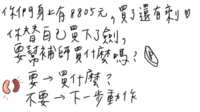 你們身上有8805元,買了還有剩
你替自己買下了劍,
要幫補師買什麼嗎?
要→買什麼?
不要→下一步動作